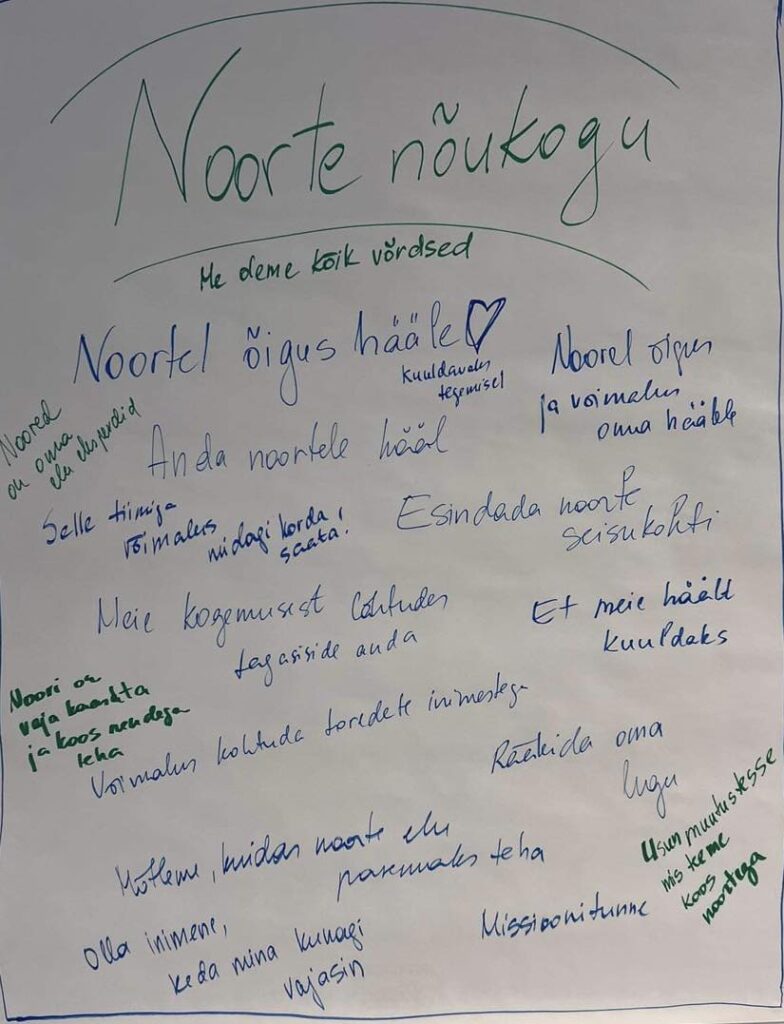 Noorte nõukogu
Me oleme kõik võrdsed
Noortel õigus hääle
kuuldavaks
tegemisel
Noorel õigus
ja võimalus
oma häälele
Noored
on oma
elu eksperdid
Anda noortele hääl
Selle tiimiga
võimalus
midagi korda
saata!
Esindada noorte
seisukohti
Meie kogemusist lähtudes
tagasiside anda
Et meie häält
kuuldaks
Noori on
vaja kaasata
ja koos nendega
teha
Võimalus kohtuda toredete inimestega
Rääkida oma
lugu
Mõtleme, kuidas noorte elu
paremaks teha
Usun muutustesse
mis teme
koos
noortega
Olla inimene,
keda mina kunagi
vajasin
Missioonitunne